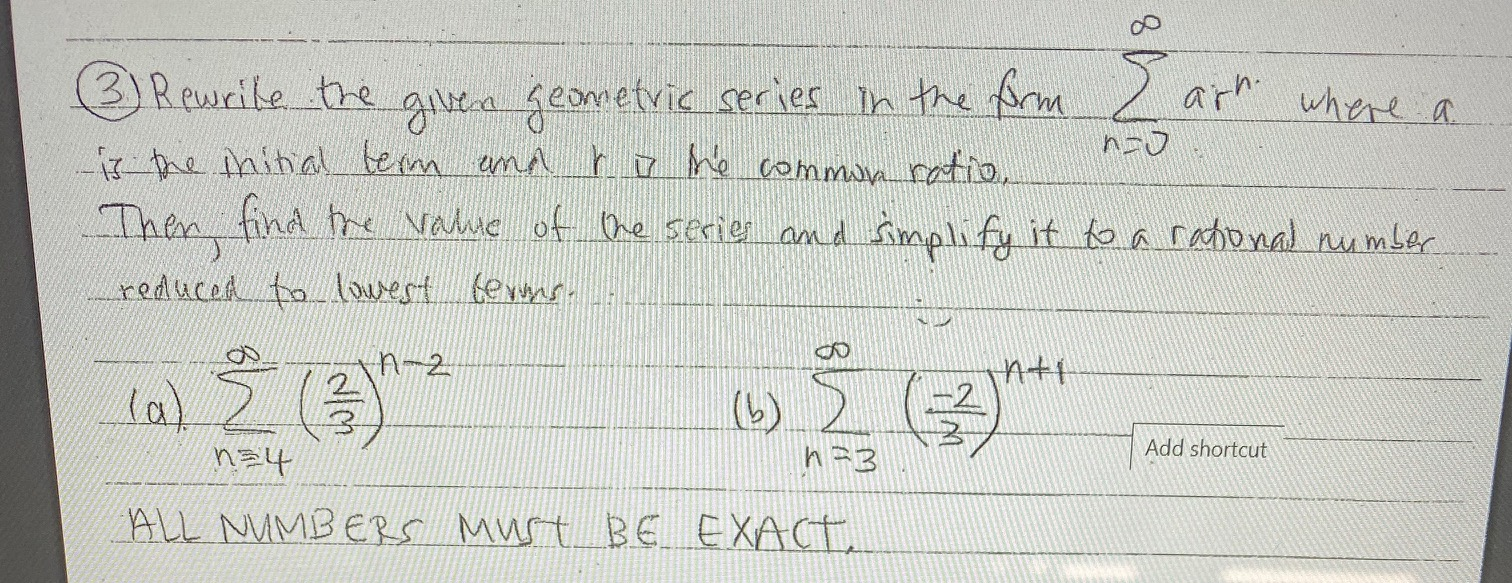 ③ Rewrite the given geometric series in the form ∑_{n=0}^{∞} ar^n where a
is the initial term and r is the common ratio.
Then, find the value of the series and simplify it to a rational number
reduced to lowest terms.
(a) ∑_{n=4}^{∞} (2/3)^{n-2} (b) ∑_{n=3}^{∞} (-2/3)^{n+1}
Add shortcut
ALL NUMBERS MUST BE EXACT.